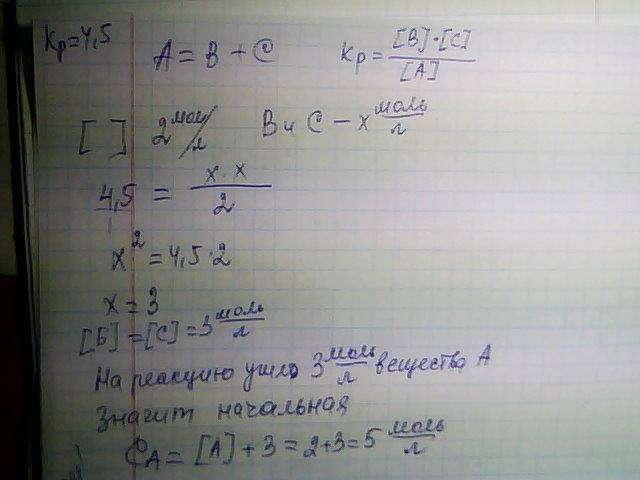 Kp=4,5
A = B + C Kp = [B]·[C] / [A]
[ ] 2 моль/л B и C – x моль/л
4,5 = x·x / 2
x² = 4,5·2
x = 3
[B] = [C] = 3 моль/л
На реакцию ушло 3 моль/л вещества A
Значит начальная
C_A = [A] + 3 = 2+3 = 5 моль/л